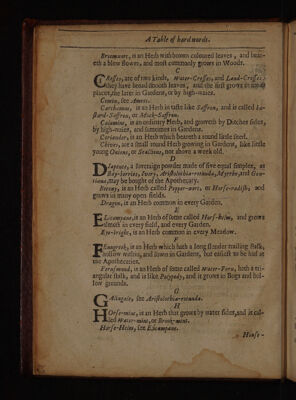 A Table of hard words.
Broomwort, is an Herb with brown coloured leaves, and bear-
eth a blew flower, and most commonly grows in Woods.
C
CResses, are of two kinds, Water-Cresses, and Land-Cresses;
they have broad smooth leaves, and the first grows in moist
places, the later in Gardens, or by high-waies.
Comin, see Ameos.
Carthamus, is an Herb in taste like Saffron, and is called Ba-
stard-Saffron, or Mock-Saffron.
Calamint, is an ordinary Herb, and groweth by Ditches sides,
by high-waies, and sometimes in Gardens.
Coriander, is an Herb which beareth a round little seed.
Chives, are a small round Herb growing in Gardens, like little
young Onions, or Scallions, not above a week old.
D
DIapente, a soveraign powder made of five equal simples, as
Bay-berries, Ivory, Aristolochia-rotunda, Myrrhe, and Gen-
tiana, may be bought of the Apothecary.
Bittany, is an Herb called Pepper-wort, or Horse-radish; and
grows in many open fields.
Dragon, is an Herb common in every Garden.
E
ELicampane, is an Herb of some called Horse-helm, and grows
almost in every field, and every Garden.
Eye-bright, is an Herb common in every Meadow.
F
FEnugreek, is an Herb which hath a long slender trailing stalk,
hollow within, and sown in Gardens, but easiest to be had at
the Apothecaries.
Fern-osmund, is an Herb of some called Water-Fern, hath a tri-
angular stalk, and is like Polypody, and it grows in Bogs and hol-
low grounds.
G
GAlingale, see Aristolochia-rotunda.
H
HOrse-mint, is an Herb that grows by water sides, and is cal-
led Water-mint, or Brook-mint.
Horse-Helm, see Elicampane.
House-